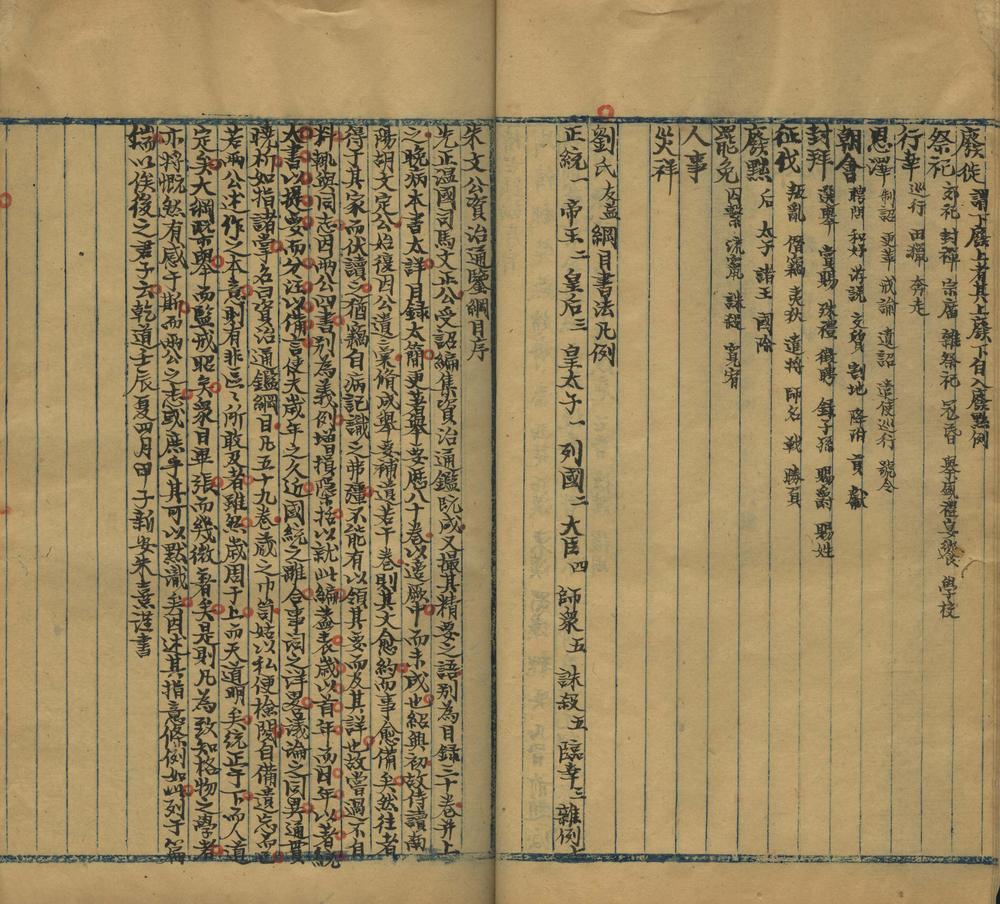 廢徙 謂下廢上者其上廢下自入廢黜例
祭祀 郊祀 封禪 宗廟 雜祭祀 冠昏 舉盛禮宴饗 學校
行幸 巡行 田獵 奔走
恩澤 制詔 更革 戒諭 遺詔 遣使巡行 號令
朝會 聘問 和好 游說 交質 割地 降附 貢獻
封拜 選舉 賞賜 殊禮 徵聘 錄子孫 賜爵 賜姓
征伐 叛亂 僭竊 夷狄 遣將 師名 戰 勝負
廢黜 后 太子 諸王 國除
罷免 囚繫 流竄 誅殺 寬宥
人事
災祥
劉氏友益綱目書法凡例
正統一 帝王二 皇后三 皇太子一 列國二 大臣四 師衆五 誅殺五 臨幸三 雜例上
朱文公資治通鑒綱目序
先正溫國司馬文正公受詔編集資治通鑑既成又撮其精要之語別為目錄三十卷并上
之晚病本書太詳目錄太簡更著舉要歷八十卷以適厥中而未成也紹興初故侍讀南
陽胡文定公始復因公遺稾脩成舉要補遺若干卷則其文愈約而事愈備矣然往者
得于其家而伏讀之猶竊自病記識之弗彊不能有以領其要而及其詳也故嘗過不自
料輒與同志因兩公四書別為義例增損隱括以就此編蓋表歲以首年而因年以著統
大書以提要而分注以備言使夫歲年之久近國統之離合事詞之詳畧議論之同異通貫
曉析如指諸掌名曰資治通鑑綱目凡五十九卷歲之巾笥姑以私便檢閱自備遺忘而已
若兩公述作之本意則有非區〻所敢及者雖然歲周于上而天道明矣統正于下而人道
定矣大綱既舉而監戒昭矣衆目畢張而幾微著矣是則凡為致知格物之學者
亦將慨然有感于斯而兩公之志或庶乎其可以默識矣因述其指意條例如此列于篇
端以俟後之君子云乾道壬辰夏四月甲子新安朱熹謹書